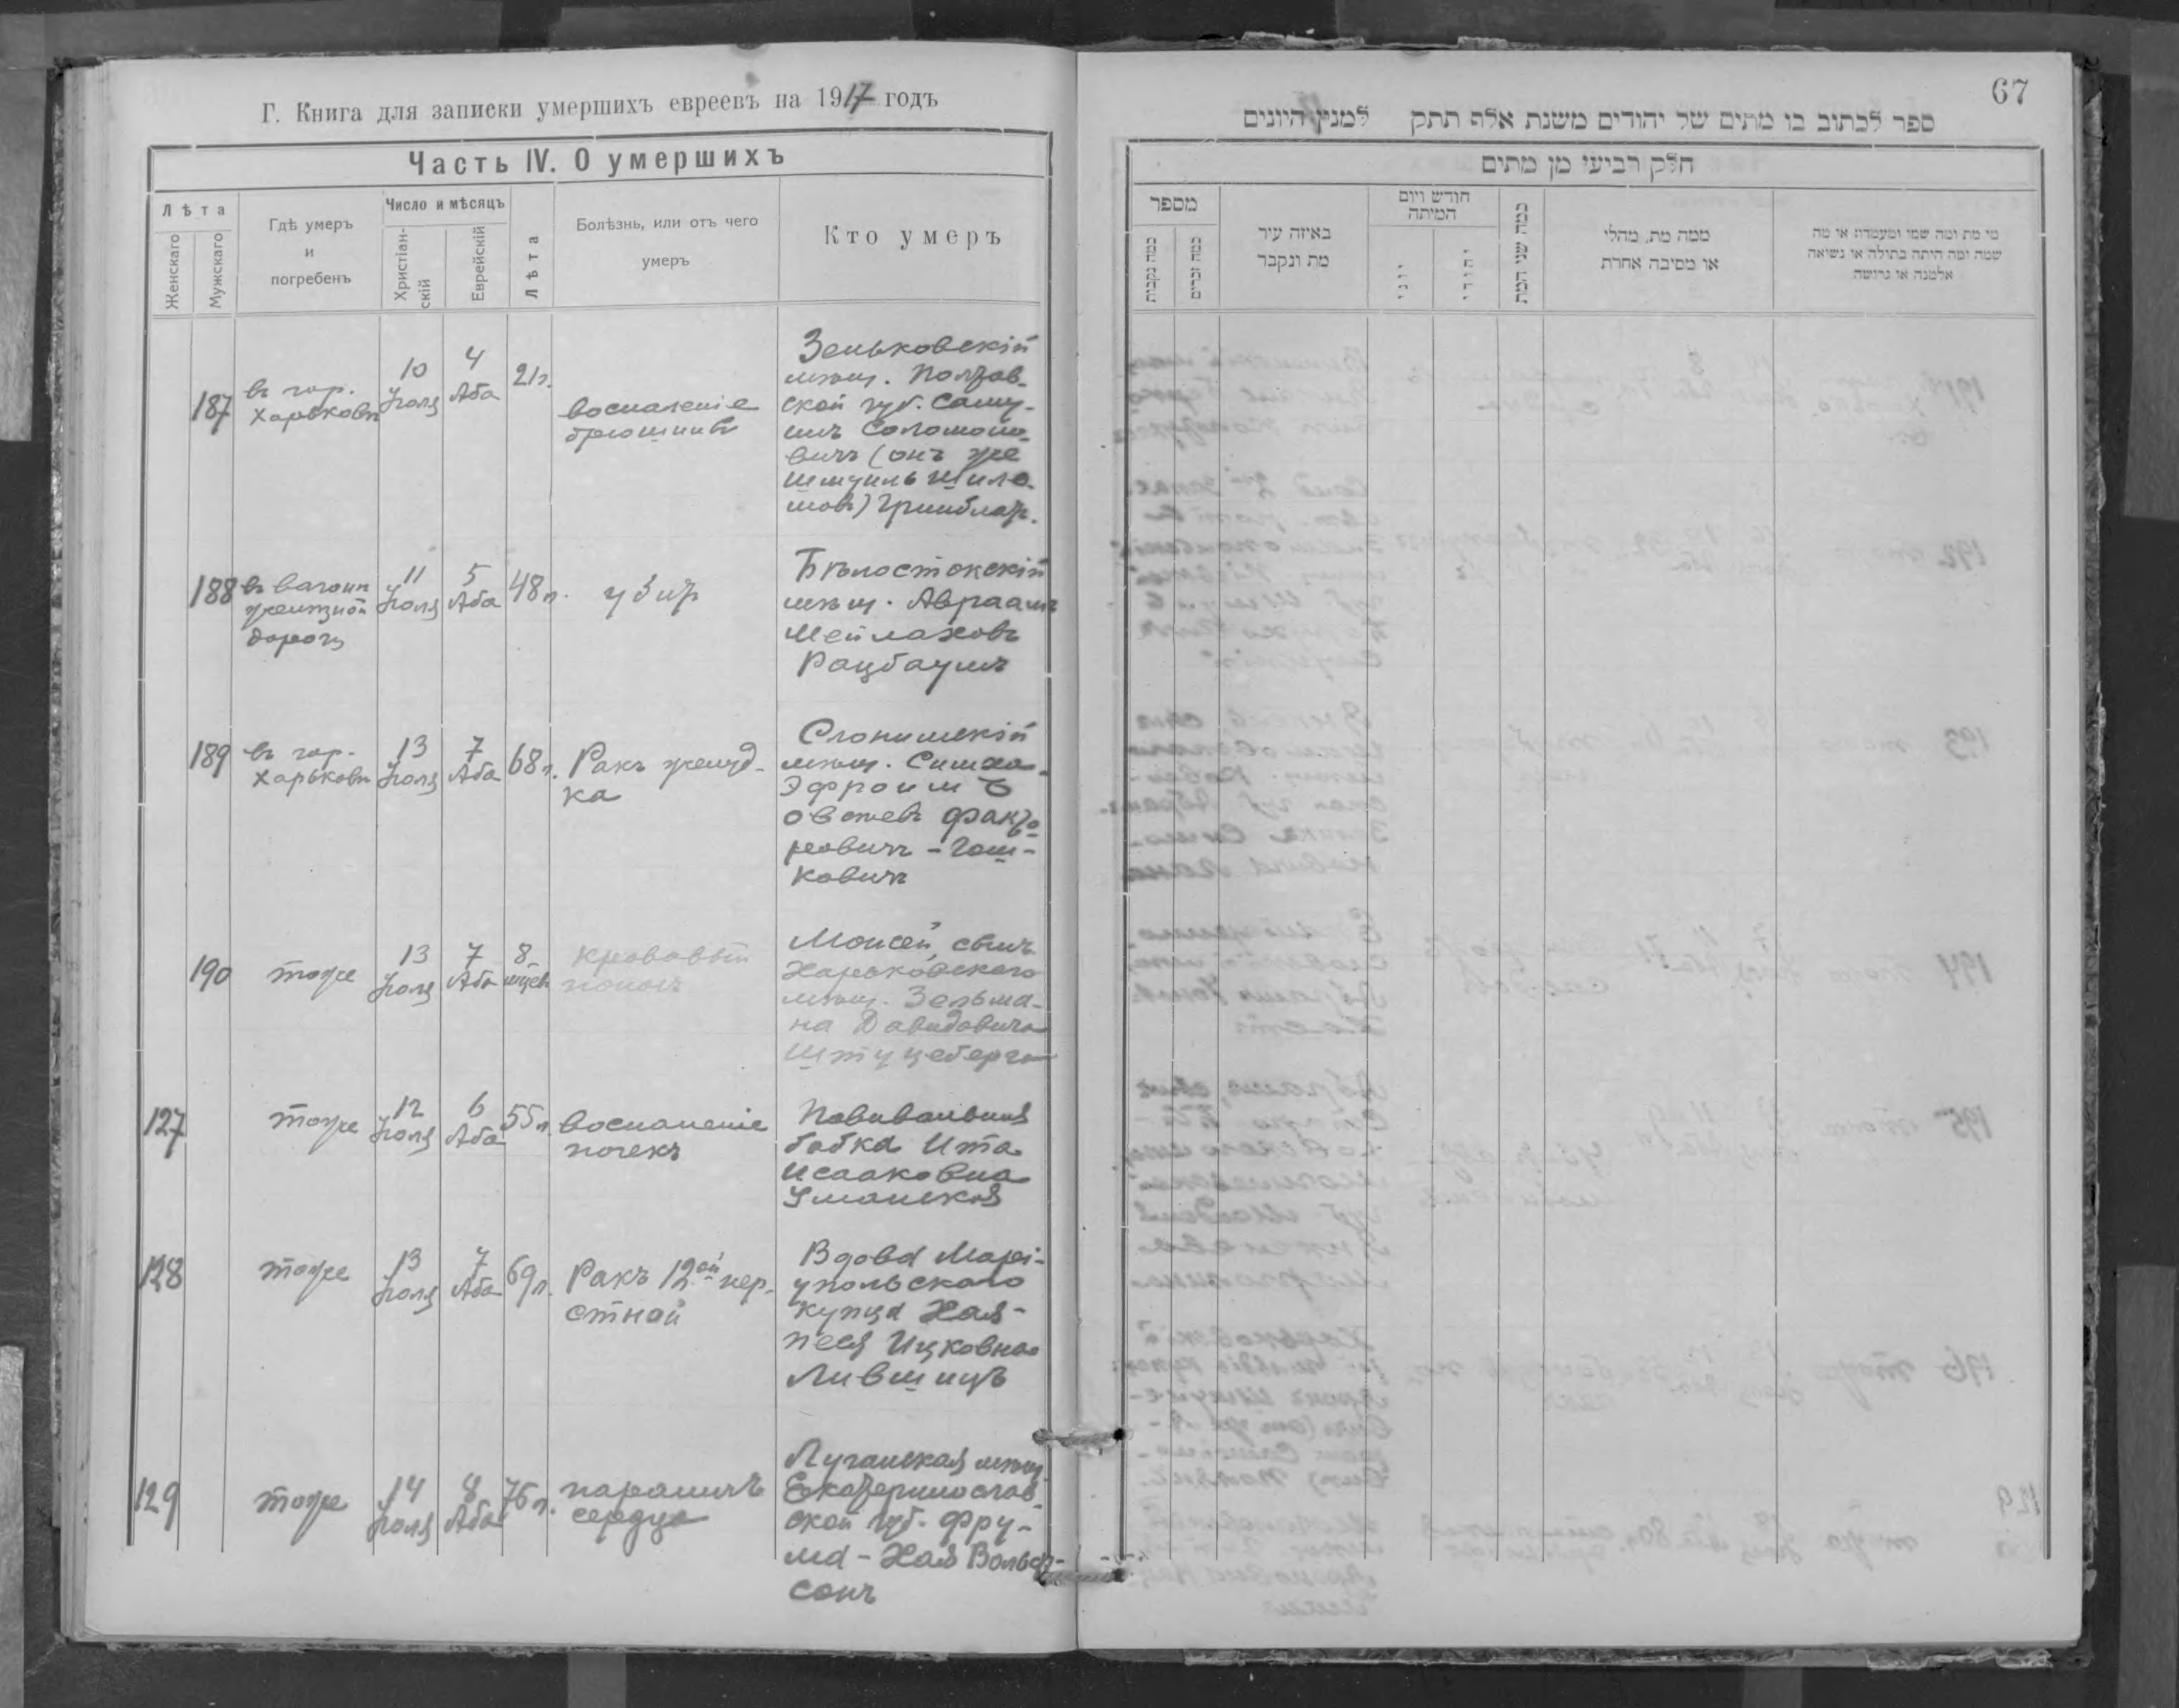 Г. Книга для записки умершихъ евреевъ на 1917 годъ
Часть IV. О умершихъ
Лѣта
Женскаго
Мужскаго
Гдѣ умеръ
и
погребенъ
Число и мѣсяцъ
Христіан-
скій
Еврейскій
Лѣта
Болѣзнь, или отъ чего
умеръ
Кто умеръ
187
въ гор.
Харьковѣ
10
Іюля
4
Аба
21 г.
воспаленіе
брюшины
Зеньковскій
мѣщ. Полтав-
ской губ. Саму-
илъ Соломоно-
вичъ (онъ же
Шмуилъ Шлио-
мовъ) Гринблат.
188
въ вагонѣ
желѣзной
дороги
11
Іюля
5
Аба
48 л.
убит
Бѣлостокскій
мѣщ. Авраамъ
Мейлаховъ
Рацбаумъ
189
въ гор.
Харьковѣ
13
Іюля
7
Аба
68 л.
Ракъ желуд-
ка
Слонимскій
мѣщ. Симха-
Эфроимъ
Овсеевъ Факто
ровичъ - Гош-
ковичъ
190
тоже
13
Іюля
7
Аба
8
мцев
кровавый
поносъ
Моисей, сынъ
Харьковскаго
мѣщ. Зельма-
на Давидовича
Штуцеберга
127
тоже
12
Іюля
6
Аба
55 л.
воспаленіе
почекъ
Повивальная
бабка Ита
Исааковна
Уманская
128
тоже
13
Іюля
7
Аба
69 л.
Ракъ 12ой пер-
стной
Вдова Марі-
упольскаго
купца Хая-
Песя Ицковна
Лившицъ
129
тоже
14
Іюля
8
Аба
76 л.
параличъ
сердца
Луганская мѣщ.
Екатеринослав-
ской губ. Фру-
ма - Хая Вольф-
сонъ
67
ספר לכתוב בו מתים של יהודים משנת אלף תתק למנין היונים
חלק רביעי מן מתים
מספר
כמה נקבות
כמה זכרים
באיזה עיר
מת ונקבר
חודש ויום
המיתה
יוני
יהודי
כמה שני המת
ממה מת, מחלי
או מסיבה אחרת
מי מת ומה שמו ומעמדו או מה
שמה ומה היתה בתולה או נשואה
אלמנה או גרושה